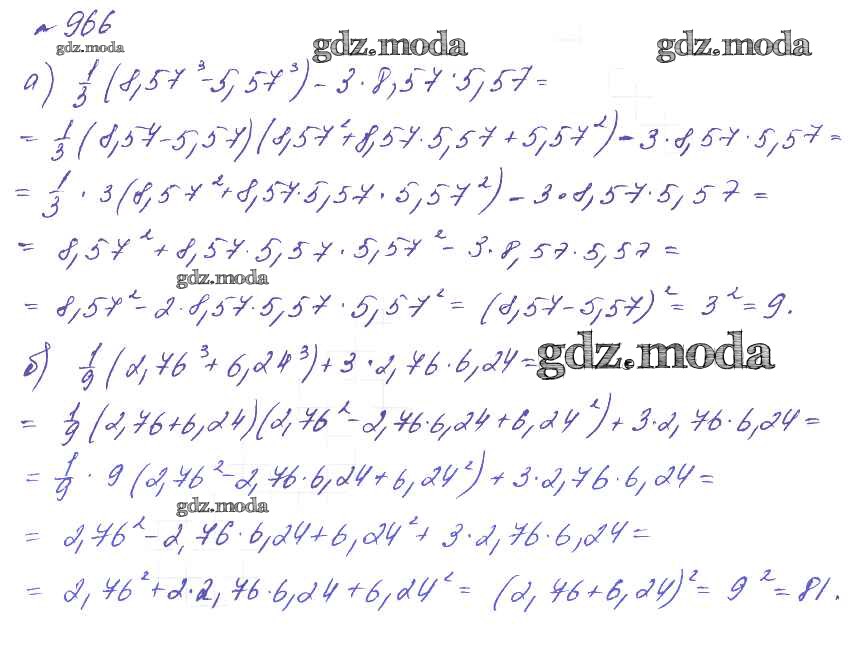 № 966
gdz.moda gdz.moda gdz.moda
а) 1/3 (8,57³ - 5,57³) - 3 · 8,57 · 5,57 =
= 1/3 (8,57 - 5,57)(8,57² + 8,57 · 5,57 + 5,57²) - 3 · 8,57 · 5,57 =
= 1/3 · 3 (8,57² + 8,57 · 5,57 · 5,57²) - 3 · 8,57 · 5,57 =
= 8,57² + 8,57 · 5,57 · 5,57² - 3 · 8,57 · 5,57 =
gdz.moda
= 8,57² - 2 · 8,57 · 5,57 · 5,57² = (8,57 - 5,57)² = 3² = 9.
б) 1/9 (2,76³ + 6,24³) + 3 · 2,76 · 6,24 = gdz.moda
= 1/9 (2,76 + 6,24)(2,76² - 2,76 · 6,24 + 6,24²) + 3 · 2,76 · 6,24 =
= 1/9 · 9 (2,76² - 2,76 · 6,24 + 6,24²) + 3 · 2,76 · 6,24 =
gdz.moda
= 2,76² - 2,76 · 6,24 + 6,24² + 3 · 2,76 · 6,24 =
= 2,76² + 2 · 2,76 · 6,24 + 6,24² = (2,76 + 6,24)² = 9² = 81.